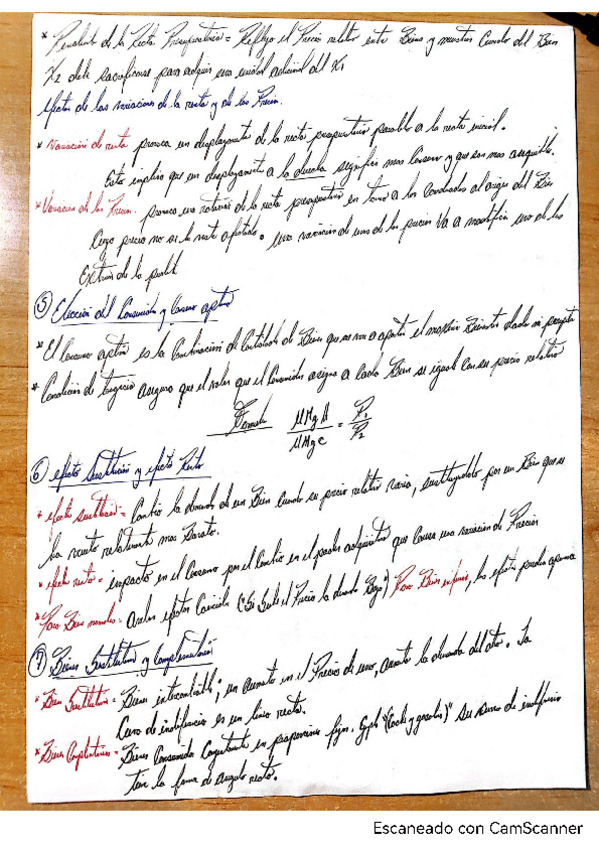 * Pendiente de la Recta Presupuestaria = Refleja el Precio relativo entre Bienes y muestra Cuanto del Bien
X2 debe sacrificarse para adquirir una unidad adicional del X1
efectos de las variaciones de la renta y de los Precios.
* Variación de renta provoca un desplazamiento de la recta presupuestaria paralelo a la recta inicial.
Esto implica que un desplazamiento a la derecha significa mas Consumo y que son mas asequibles.
* Variación de los Precios. provoca una rotación de la recta presupuestaria en torno a las Cantidades al origen del Bien
Cuyo precio no se ha visto afectado. una variación de uno de los precios va a modificar uno de los
Extremos de la
⑤ Elección del Consumidor y Consumo optimo
* El Consumo optimo es la Combinación de Cantidades de Bienes que nos va a aportar el maximo Bienestar dado mi
* Condición de tangencia asegura que el valor que el Consumidor asigna a cada Bien se iguale con su precio relativo
Formula UMgA / UMgC = P1 / P2
⑥ efecto Sustitución y efecto Renta
* efecto sustitución = Cambio la demanda de un Bien Cuando su precio relativo varia, sustituyendolo por un Bien que se
ha vuelto relativamente mas Barato.
* efecto renta = impacto en el Consumo por el Cambio en el poder adquisitivo que causa una variación de Precios
* Para Bien normales = Ambos efectos Coinciden ("Si Sube el Precio la demanda Baja") Para Bien inferior, los efectos pueden
⑦ Bienes Sustitutivos y Complementarios
* Bien Sustitutivos = Bienes intercambiables; un aumento en el Precio de uno, aumenta la demanda del otro. La
Curva de indiferencia es una linea recta.
* Bienes Complementarios = Bienes Consumidos Conjuntamente en proporciones fijas. su curva de indiferencia
tiene la forma de angulo recto.
Escaneado con CamScanner